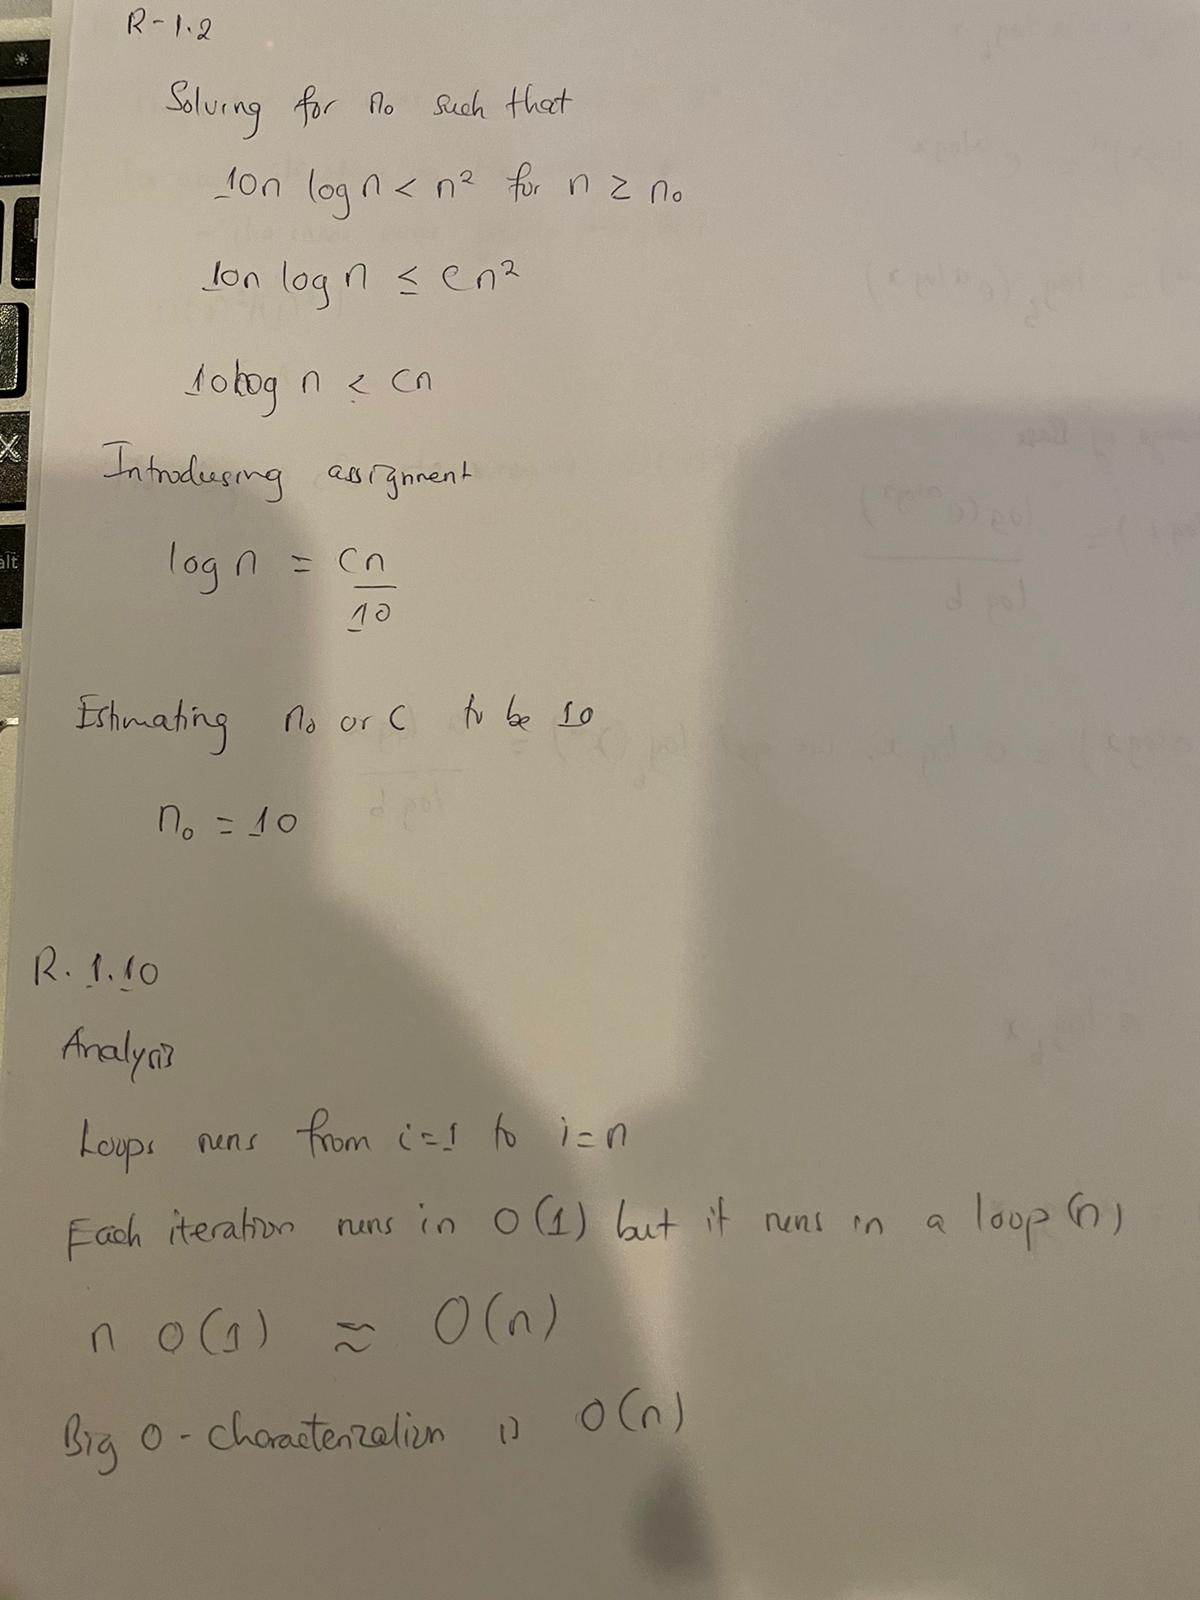 R-1.2
Solving for n₀ such that
10n log n < n² for n ≥ n₀
10n log n ≤ cn²
10 log n < cn
Introdusing assignment
log n = cn
10
Estimating n₀ or c to be 10
n₀ = 10
R. 1.10
Analysis
Loops runs from i=1 to i=n
Each iteration runs in O(1) but it runs in a loop (n)
n O(1) ≈ O(n)
Big O - characterization is O(n)